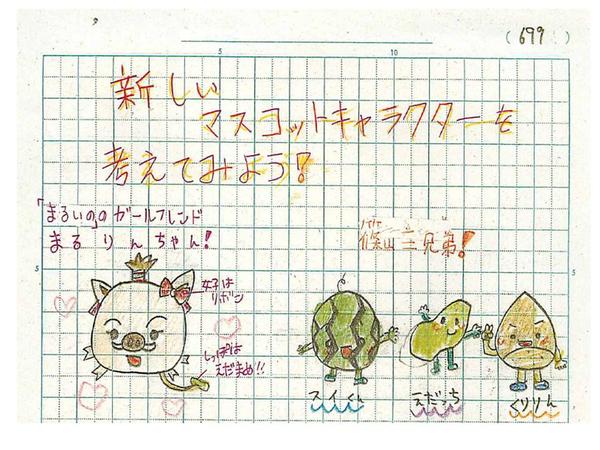 (699)
5
10
新しい
マスコットキャラクターを
考えてみよう!
「まるいの」のガールフレンド
まるりんちゃん!
篠山三兄弟!
5
5
女子は
リボン
しっぽは
えだまめ!!
スイくん
えだっち
くりりん